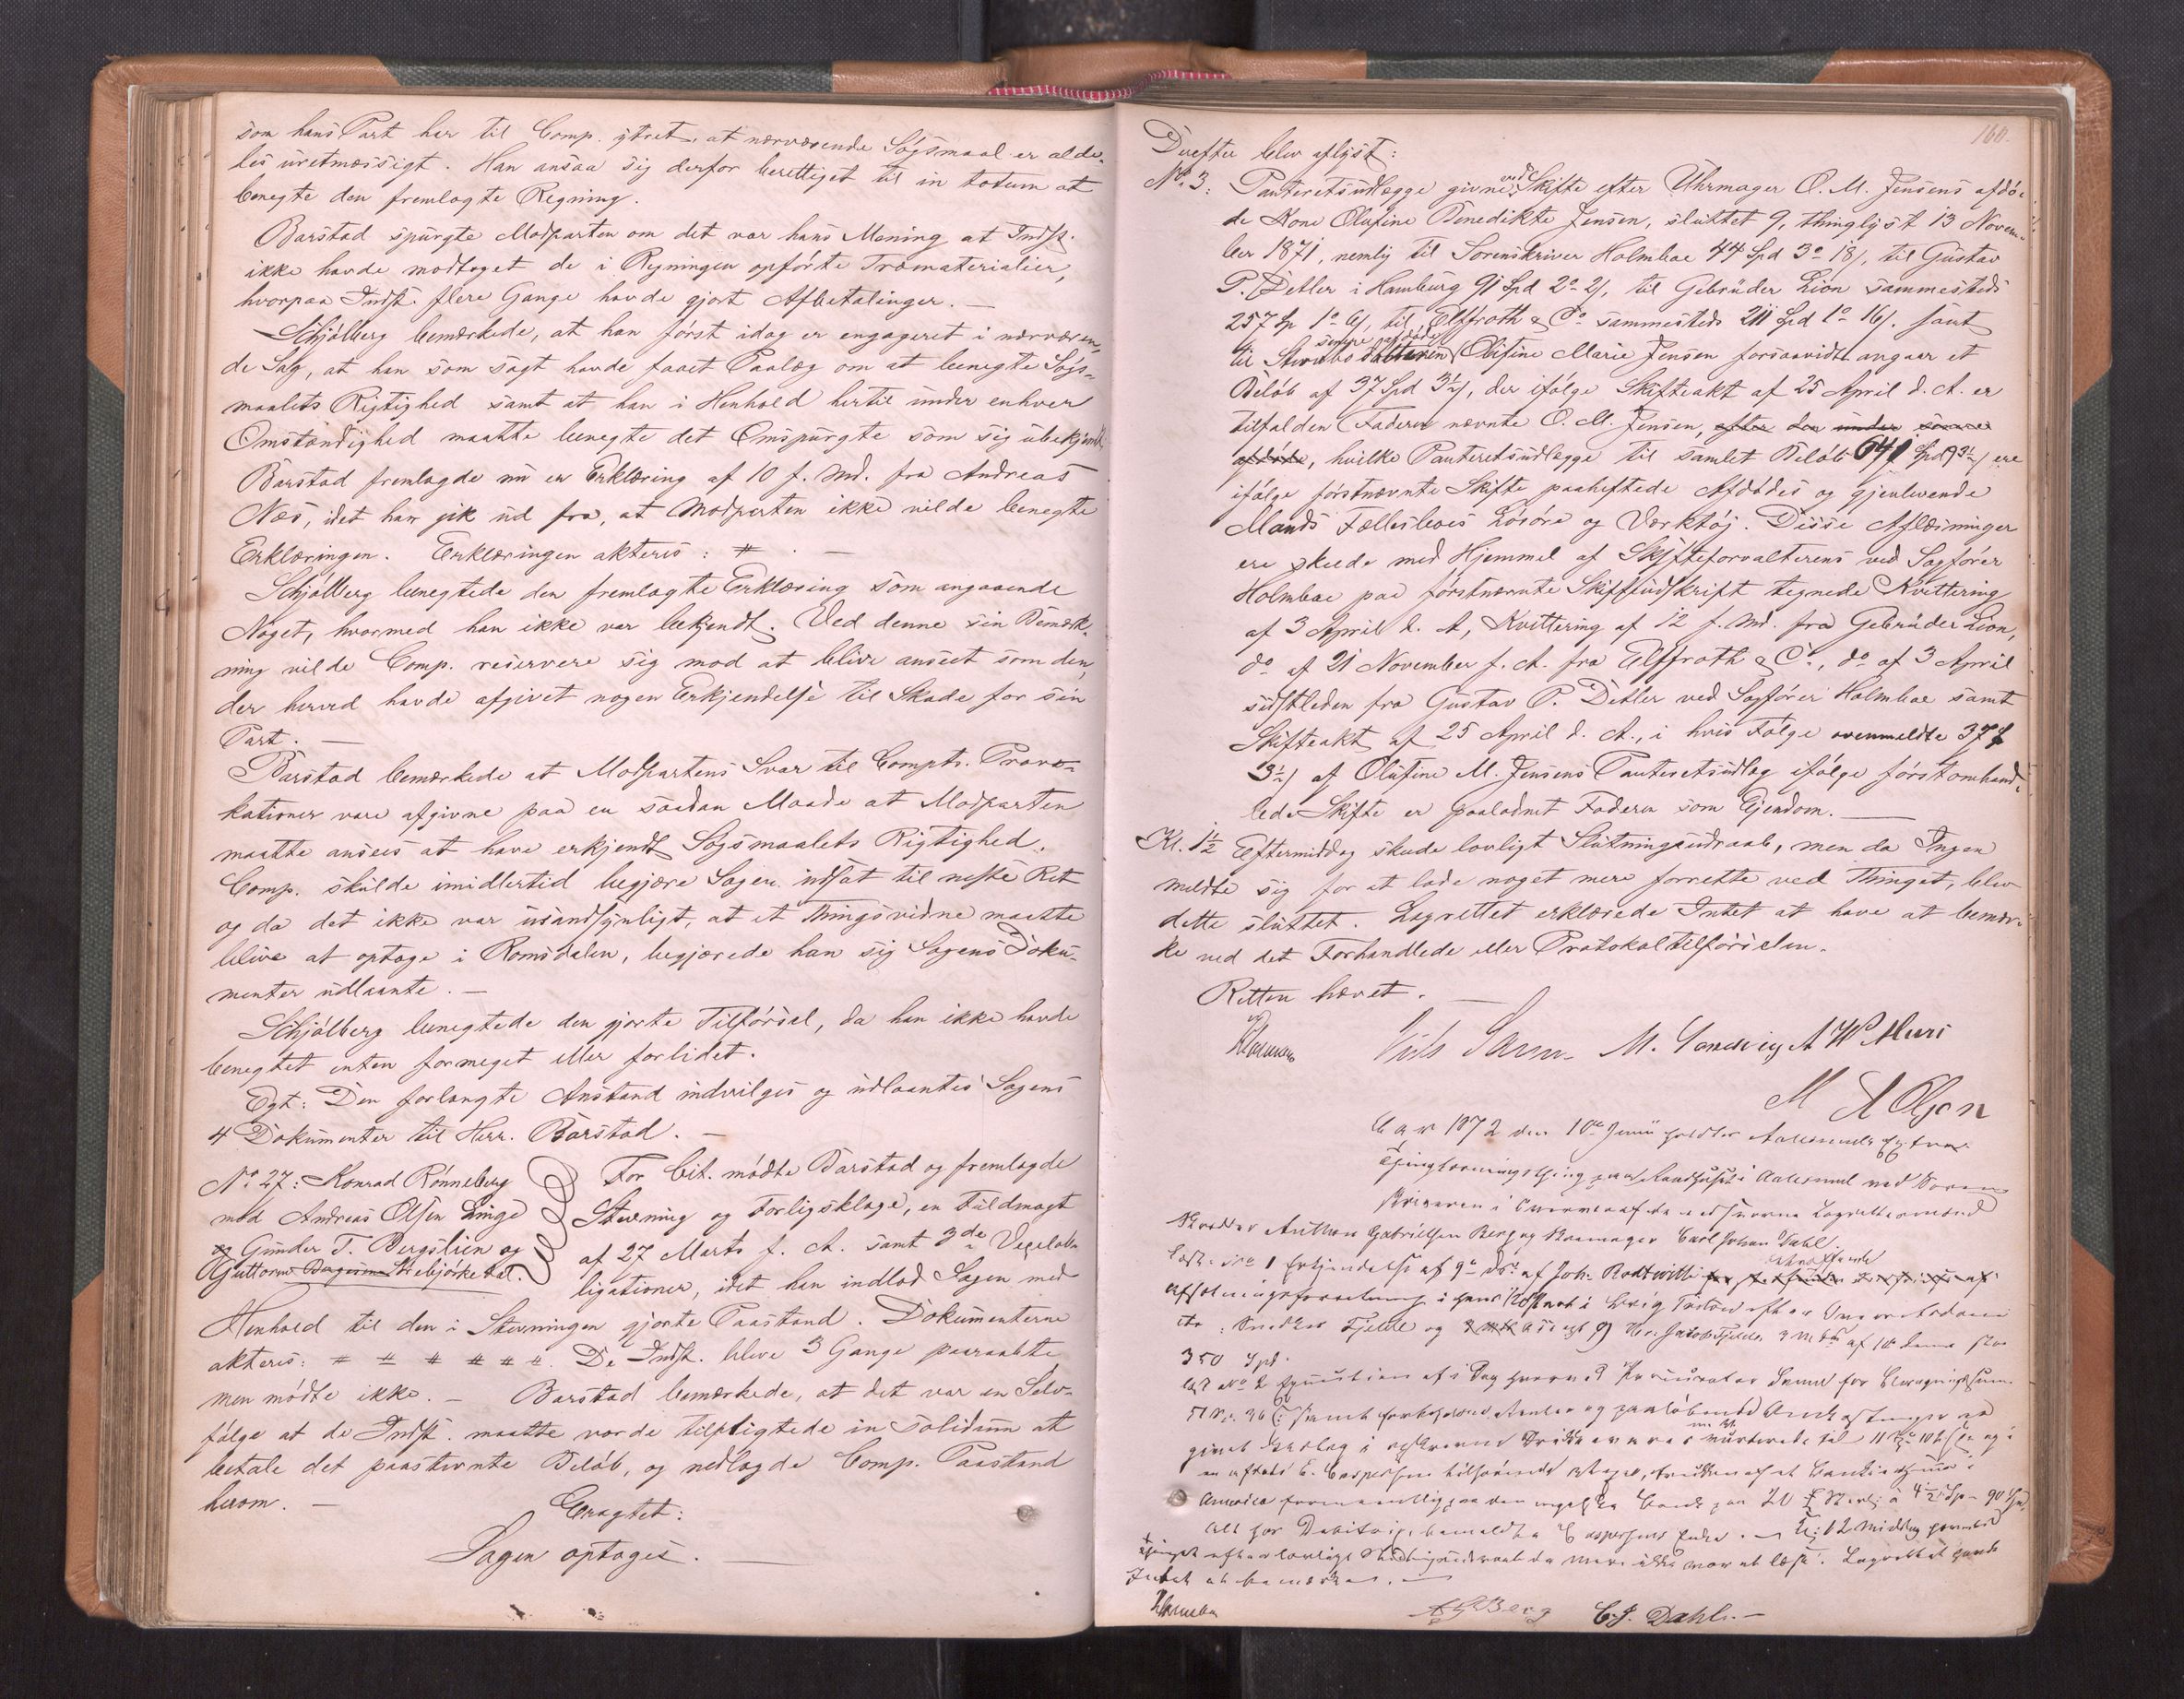 som hans Part har til Comp. ytret, at nærværende Søgsmaal er alde-
les uretmæssigt. Han ansaa sig derfor berettiget til in totum at
benegte den fremlagte Regning.
Barstad spurgte Modparten om det var hans Mening at Indst.
ikke havde modtaget de i Regningen opførte Træmaterialier,
hvorpaa Indst. flere Gange havde gjort Afbetalinger. —
Schjølberg bemærkede, at han først idag er engageret i nærværen-
de Sag, at han som sagt havde faaet Paalæg om at benegte Søgs-
maalets Rigtighed samt at han i Henhold hertil under enhver
Omstændighed maatte benegte det Omspurgte som sig ubekjendt.
Barstad fremlagde nu en Erklæring af 10 f. Md. fra Andreas
Næs, idet han gik ud fra, at Modparten ikke vilde benegte
Erklæringen. Erklæringen akteres: # . —
Schjølberg benegtede den fremlagte Erklæring som angaaende
Noget, hvormed han ikke var bekjendt. Ved denne sin Bemærk-
ning vilde Comp. reservere sig mod at blive anseet som den,
der herved havde afgivet nogen Erkjendelse til Skade for sin
Part. —
Barstad bemærkede at Modpartens Svar til Compts. Provo-
kationer vare afgivne paa en saadan Maade at Modparten
maatte ansees at have erkjendt Søgsmaalets Rigtighed.
Comp. skulde imidlertid begjære Sagen udsat til neste Ret
og da det ikke var usandsynligt, at et Thingsvidne maatte
blive at optage i Romsdalen, begjærede han sig Sagens Doku-
menter udlaante. —
Schjølberg benegtede den gjorte Tilførsel, da han ikke havde
benegtet enten formeget eller forlidet.
Egt: Den forlangte Anstand indvilges og udlaantes Sagens
4 Dokumenter til Herr. Barstad. —
No 27: Konrad Rønneberg
mod Andreas Olsen Linge
og Gunder T. Bergslien og
Guttorm Strebjørkedal.
For Cit. mødte Barstad og fremlagde
Stevning og Forligsklage, en Fuldmagt
af 27 Marts f. A. samt 3de Vexelob-
ligationer, idet han indlod Sagen med
Henhold til den i Stevningen gjorte Paastand. Dokumenterne
akteres: # # # # # #. De Indst. bleve 3 Gange paaraabte
men mødte ikke. — Barstad bemærkede, at det var en Selv-
følge at de Indst. maatte vorde tilpligtede in solidum at
betale det paastevnte Beløb, og nedlagde Comp. Paastand
herom. —
Eragtet:
Sagen optages. —
160.
Derefter blev aflyst:
No. 3: Panteretsudlægge givne ved Skifte efter Uhrmager O. M. Jensens afdø-
de Kone Olufine Benedikte Jensen, sluttet 9, thinglyst 13 Novem-
ber 1871, nemlig til Sorenskriver Holmboe 44 Spd 3o 18/, til Gustav
P. Detler i Hamburg 91 Spd 2o 2/, til Gebrüder Lion sammesteds
257 Sp 1o 6/, til Elffroth & Co sammesteds 211 Spd 1o 16/. samt
til Sterbbodatteren Olufine Marie Jensen forsaavidt angaar et
Beløb af 37 Spd 3½/, der ifølge Skifteakt af 25 April d. A. er
tilfalden Faderen nævnte O. M. Jensen, efter den under samme
afdøde, hvilke Panteretsudlægge til samlet Beløb 641 Spd 3½/ ere
ifølge førstnævnte Skifte paaheftede Afdødes og gjenlevende
Mands Fællesboes Løsøre og Værktøj. Disse Aflæsninger
ere skeede med Hjemmel af Skifteforvalterens ved Sagfører
Holmboe paa førstnævnte Skifteudskrift tegnede Kvittering
af 3 April d. A, Kvittering af 12 f. Md. fra Gebrüder Lion,
do af 21 November f. A. fra Elffroth & Co., do af 3 April
sidstleden fra Gustav P. Detler ved Sagfører Holmboe samt
Skifteakt af 25 April d. A., i hvis Følge ovenmeldte 37
3½/ af Olufine M. Jensens Panteretsudlæg ifølge førstomhand-
lede Skifte er paaladnet Faderen som Ejendom. —
Kl. 1½ Eftermiddag skede lovligt Slutningsudraab, men da Ingen
meldte sig for at lade noget mere forrette ved Thinget, blev
dette sluttet. Lagrettet erklærede Intet at have at bemær-
ke ved det Forhandlede eller Protokoltilførselen.
Retten hævet. —
M. Sandvig
M A Olsen
Aar 1872 den 10de Juni holdtes Aalesunds Extra-
thinglæsningsthing paa Raadhuset i Aalesund ved Soren-
skriveren i Overværelse af de edsvorne Lagrettesmænd
Skrædder Anthon Gabrielsen Berg og Skomager Carl Johan Dahl.
350 Spd.
A G Berg C. J. Dahl. —